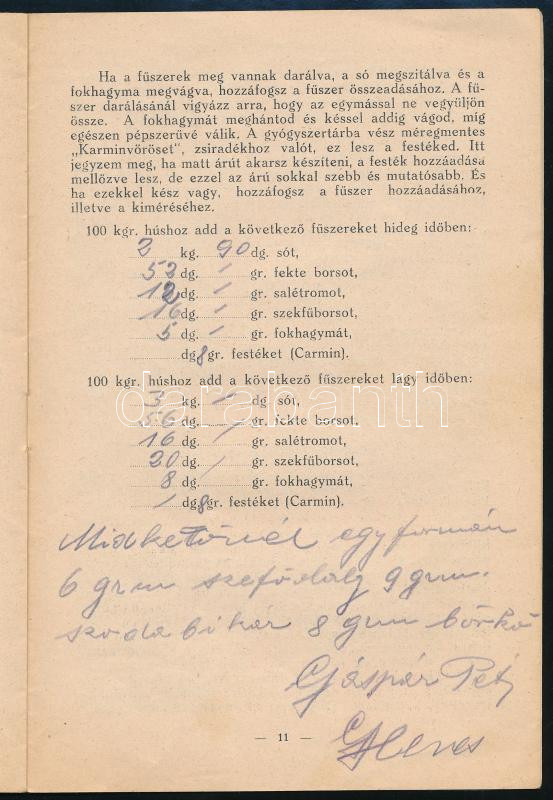 Ha a fűszerek meg vannak darálva, a só megszitálva és a
fokhagyma megvágva, hozzáfogsz a fűszer összeadásához. A fű-
szer darálásánál vigyázz arra, hogy az egymással ne vegyüljön
össze. A fokhagymát meghántod és késsel addig vágod, míg
egészen pépszerűvé válik. A gyógyszertárba vész méregmentes
„Karminvöröset”, zsiradékhoz valót, ez lesz a festéked. Itt
jegyzem meg, ha matt árút akarsz készíteni, a festék hozzáadása
mellőzve lesz, de ezzel az árú sokkal szebb és mutatósabb. És
ha ezekkel kész vagy, hozzáfogsz a fűszer hozzáadásához,
illetve a kiméréséhez.
100 kgr. húshoz add a következő fűszereket hideg időben:
2 kg. 90 dg. sót,
52 dg. / gr. fekte borsot,
12 dg. / gr. salétromot,
16 dg. / gr. szekfűborsot,
5 dg. / gr. fokhagymát,
dg 8 gr. festéket (Carmin).
100 kgr. húshoz add a következő fűszereket lágy időben:
3 kg. / dg. sót,
56 dg. / gr. fekte borsot,
16 dg. / gr. salétromot,
20 dg. / gr. szekfűborsot,
8 dg. / gr. fokhagymát,
/ dg 8 gr. festéket (Carmin).
Midketőnél egyformán
6 grm 9 grm.
szoda bikár 8 gmm borkő
Gáspár Pét
Heves
— 11 —
darabanth